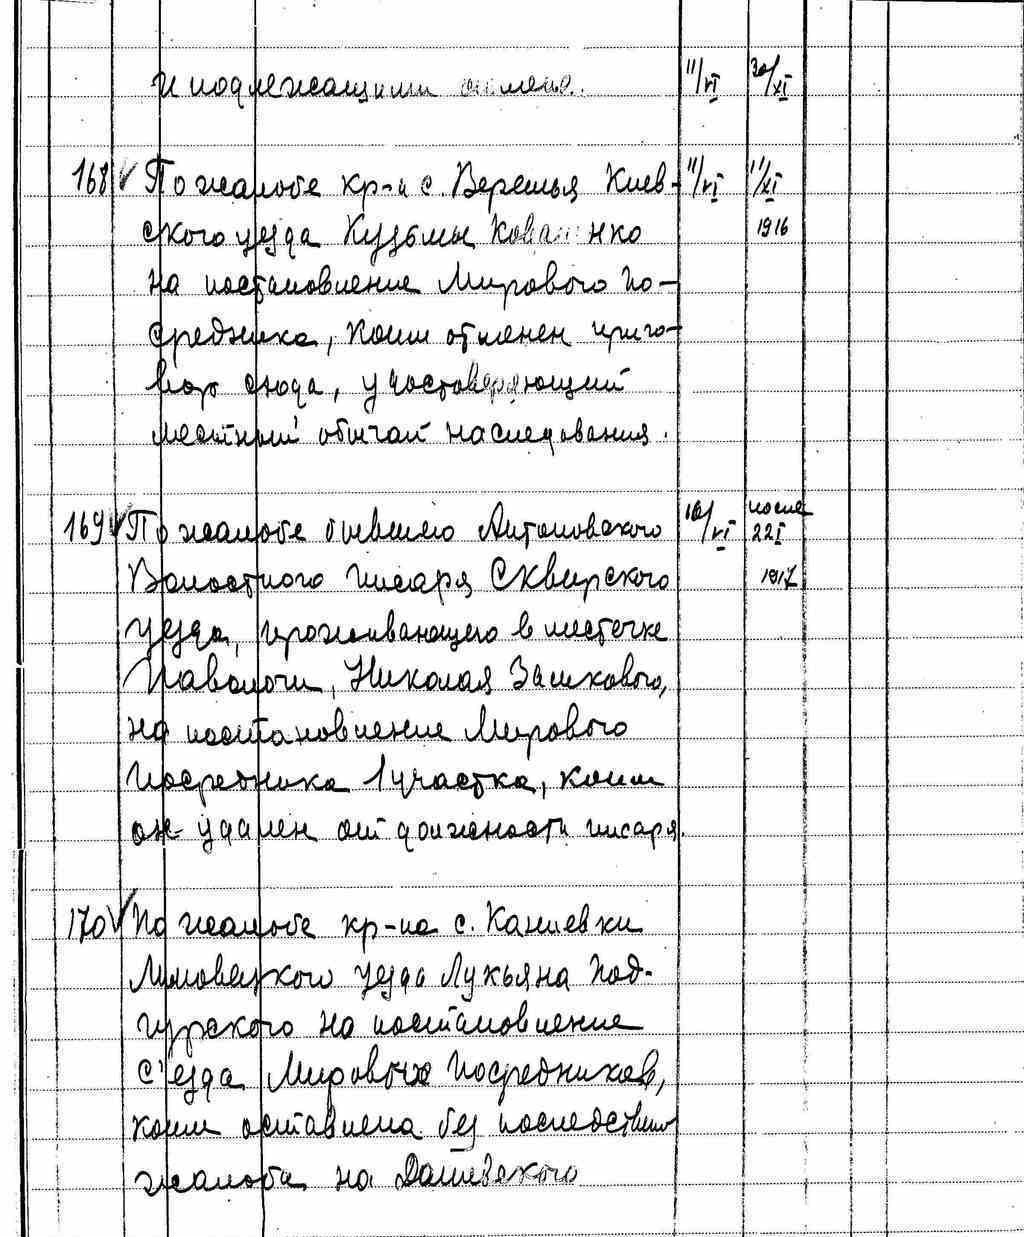 и подлежащими отмене. 11/VI 30/XI
168 По жалобе кр-на с. Веремья Киев- 11/VI 11/XI
ского уезда Кузьмы Коваленко 1916
на постановление Мирового По-
средника, коим отменен приго-
вор схода, удостоверяющий
местный обычай наследования.
169 По жалобе бывшего Антоновского 16/VI после
Волостного писаря Сквирского 22 I
уезда, проживающего в местечке 1917
Паволочи, Николая Зашкового,
на постановление Мирового
Посредника 1 участка, коим
он удален от должности писаря.
170 По жалобе кр-на с. Каниевки
Липовецкого уезда Лукьяна Под-
гурского на постановление
с'езда Мировых Посредников,
коим оставлена без последствий
жалоба на Дашевского